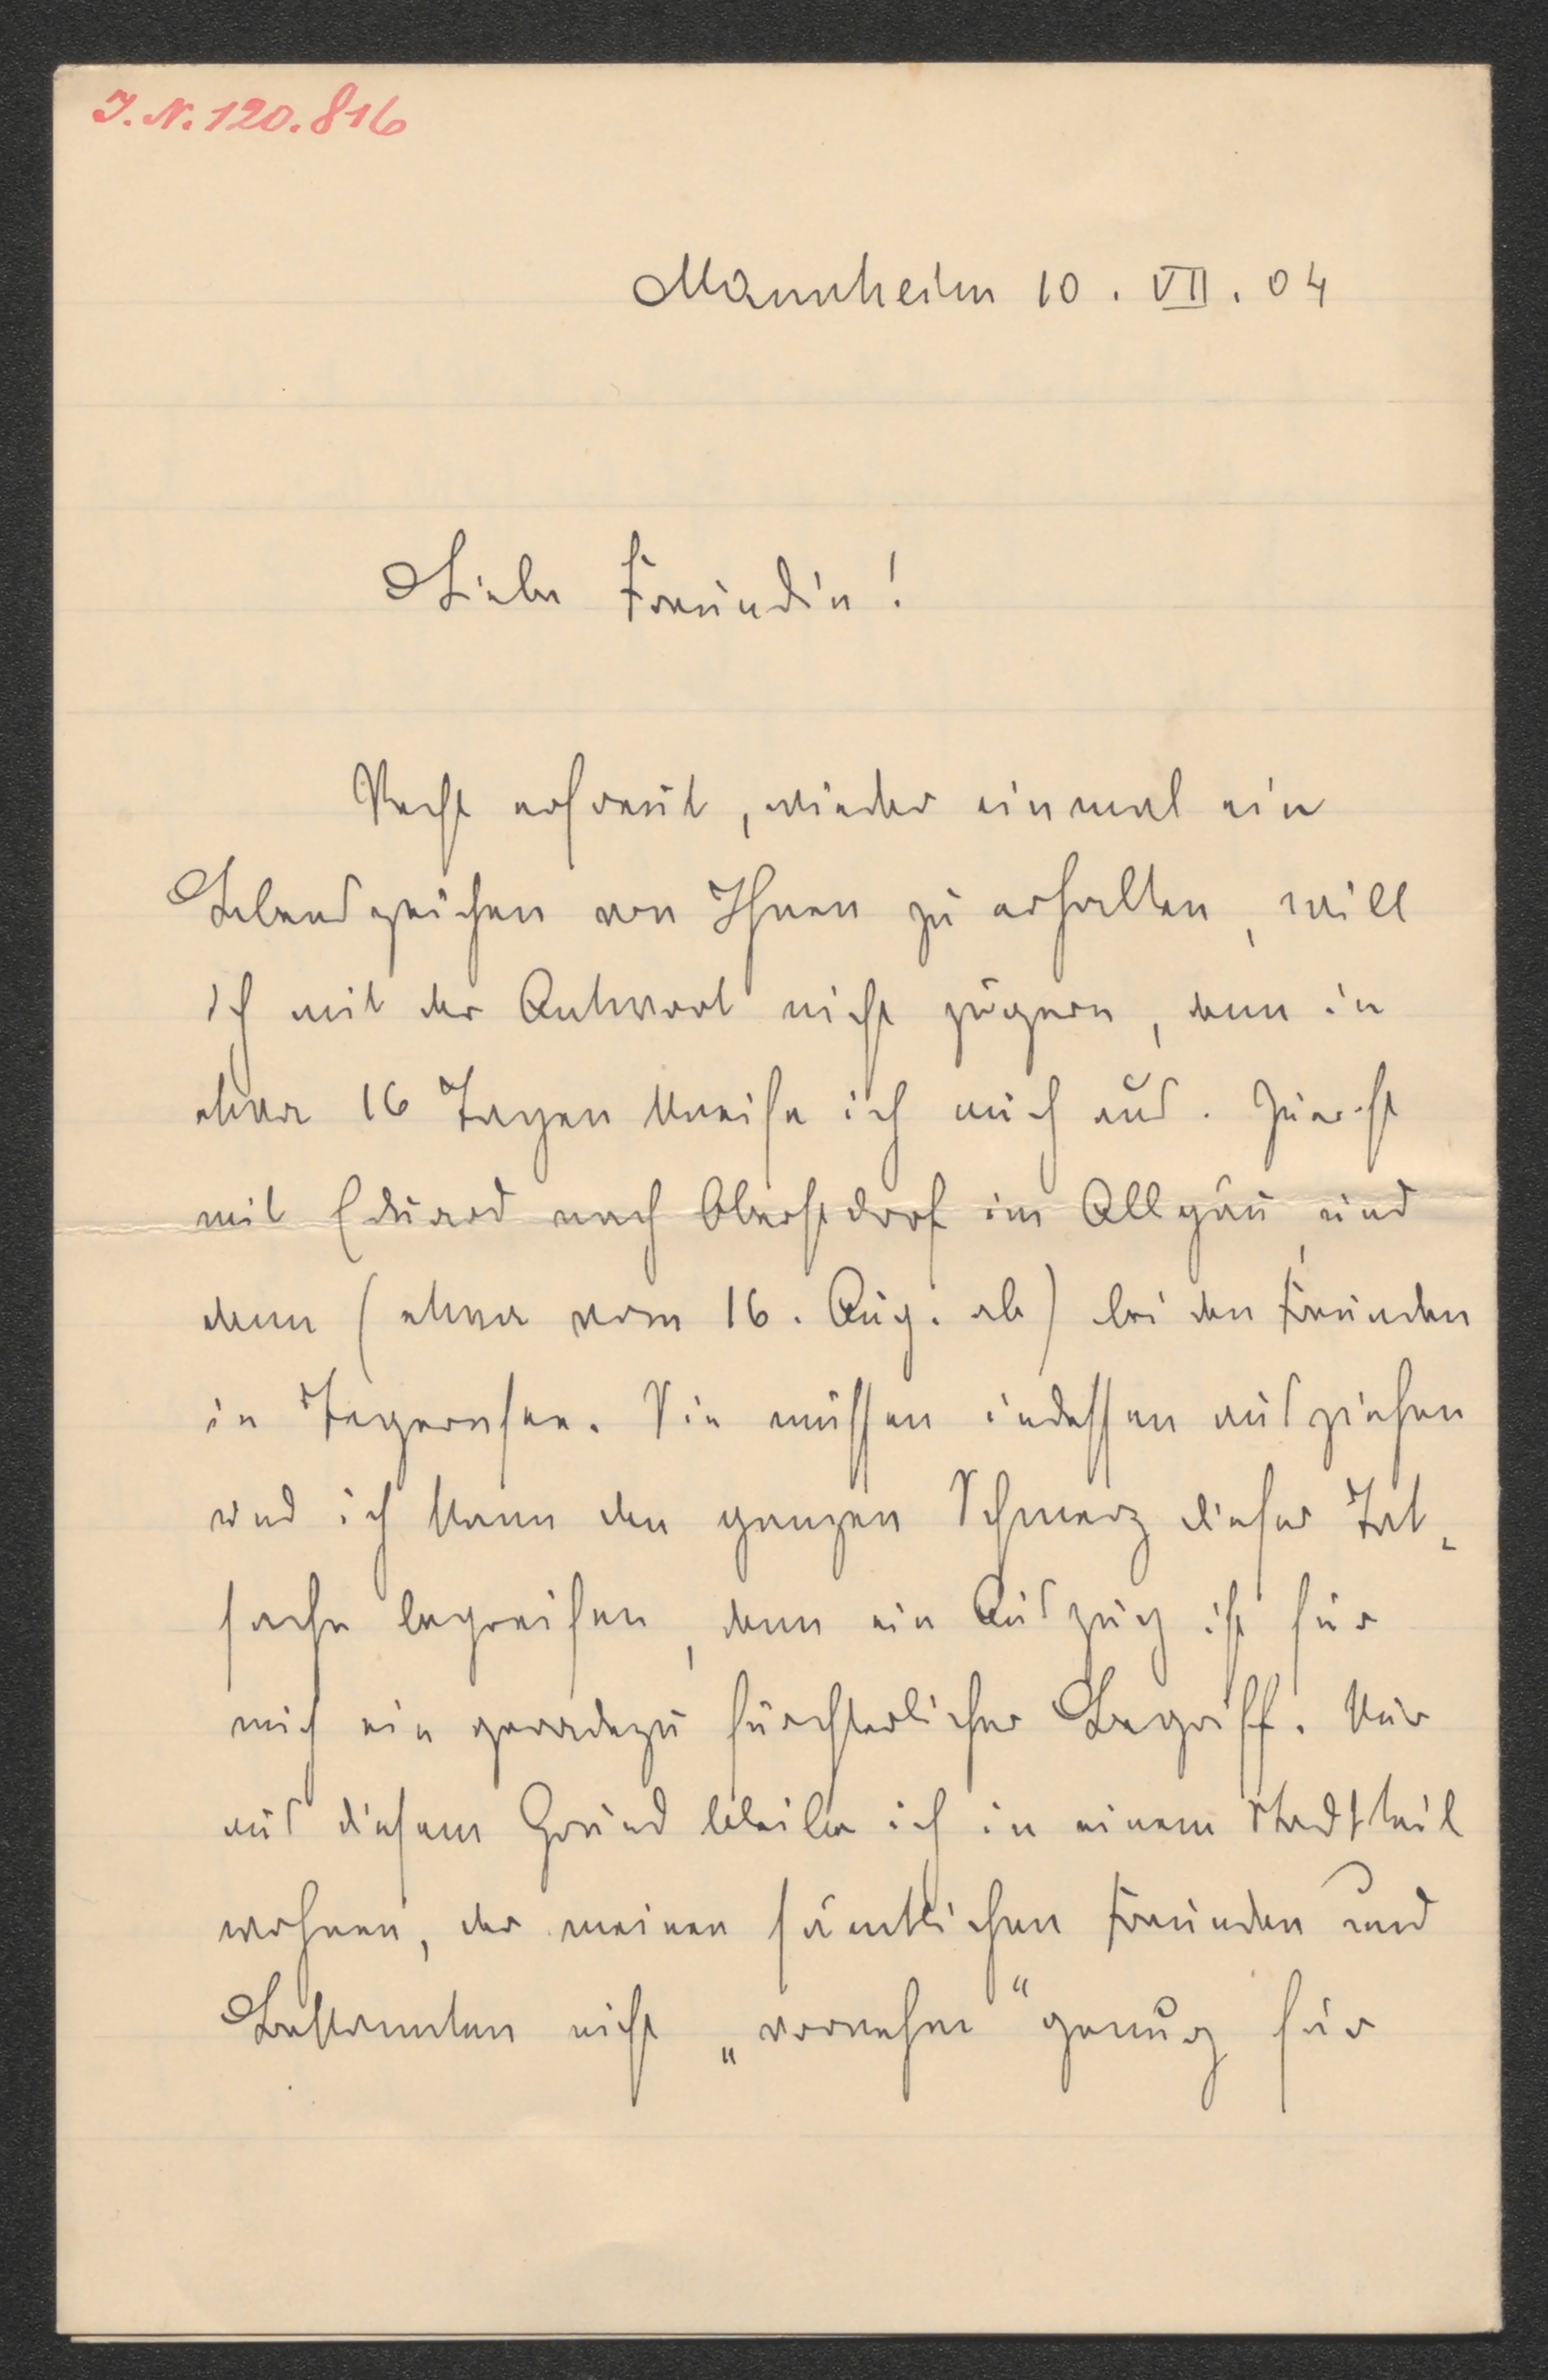 J. N. 120.816
Mannheim 10. VII. 04
Liebe Freundin!
Recht erfreut, wieder einmal ein
Lebenszeichen von Ihnen zu erhalten, will
ich mit der Antwort nicht zögern, denn in
etwa 16 Tagen kneife ich mich aus. Zuerst
mit Eduard nach Oberstdorf im Allgäu, und
dann (etwa vom 16. Aug. ab) bei den Freunden
in Tegernsee. Sie müssen indessen ausziehen
und ich kann den ganzen Schmerz dieser Tat-
sache begreifen, denn ein Auszug ist für
mich ein geradezu fürchterlicher Begriff. Nur
aus diesem Grund bleibe ich in einem Stadtteil
wohnen, der meinen sämtlichen Freunden und
Bekannten nicht „vornehm“ genug für